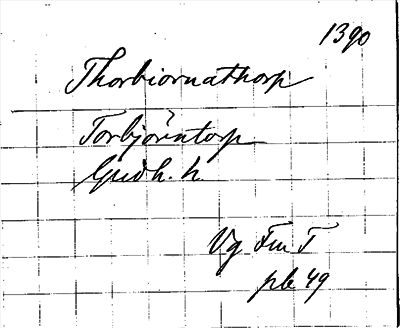 1390
Thorbiornathorp
Torbjörntorp
Gudh. h
Vg Fm T
ple 49